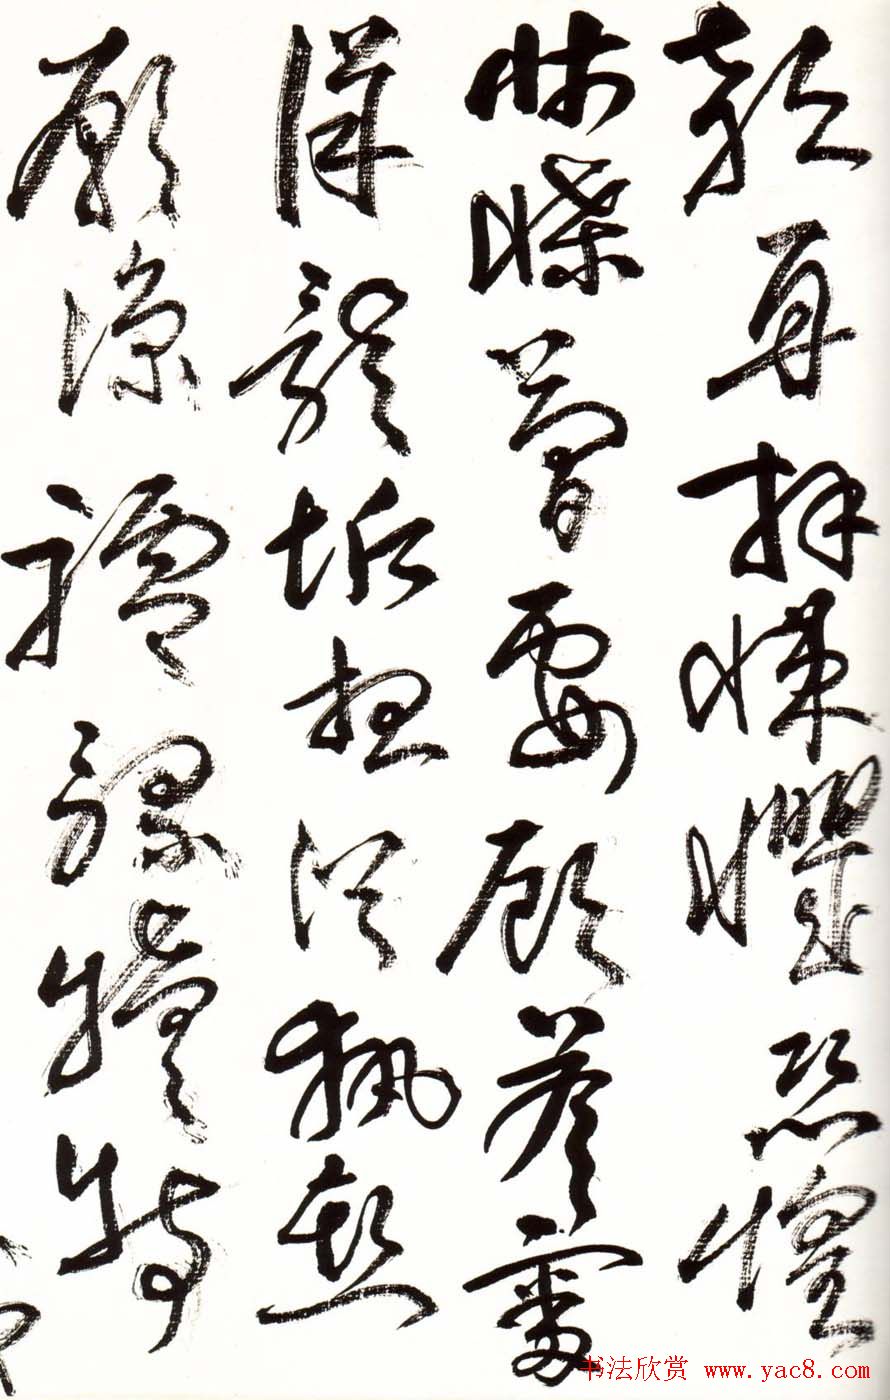 顙再拜悚懼恐惶
牋牒簡要顧答審
詳骸垢想浴執熱
願涼驢騾犢特
书法欣赏 www.yac8.com